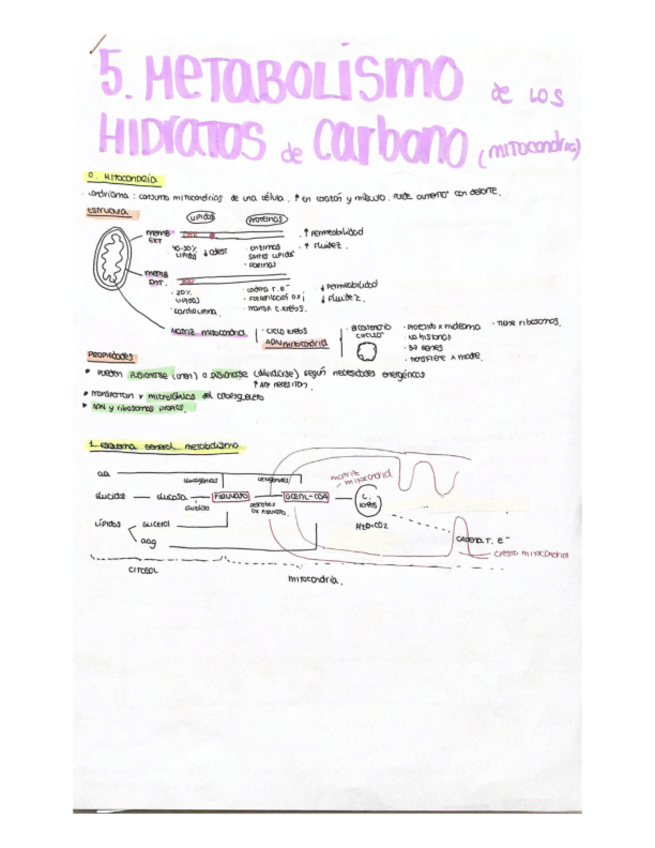 5. METABOLISMO de LOS
HIDRATOS de carbono (mitocondria)
0. MITOCONDRIA
condrioma: conjunto mitocondrias de una célula. ↑ en corazón y músculo. Puede aumentar con deporte.
ESTRUCTURA
LIPIDOS
Proteinas
MEMB EXT
40-50% LIPIDOS
↓ colest
· enzimas síntes lípidos
· Porinas
· ↑ Permeabilidad
· ↑ Fluidez.
MEMB INT.
· 20% LIPIDOS
· cardiolipina.
· cadena T. e⁻
· transp.
↓ Permeabilidad
↓ Fluidez.
MATRIZ mitocondrial
· ciclo krebs
ADN mitocondrial
· Bicatenario circular
· no histonas
· 37 genes
· transfiere x madre.
· tiene ribosomas.
PROPIEDADES
• Pueden fusionarse (unen) o fisionarse (dividirse) según necesidades energéticas
↑ ATP necesitan.
• transportan x microtúbulos del citoesqueleto
• ADN y ribosomas propios.
1. esquema general metabolismo
aa
cetogénicos
matriz mitocondrial
Glúcidos — Glucosa — PIRUVATO — ACETIL-COA — C. krebs
Glucólisis
H2O+CO2
Lípidos
Glicerol
aag
CADENA T. e⁻
cresta mitocondrial
CITOSOL
mitocondria.